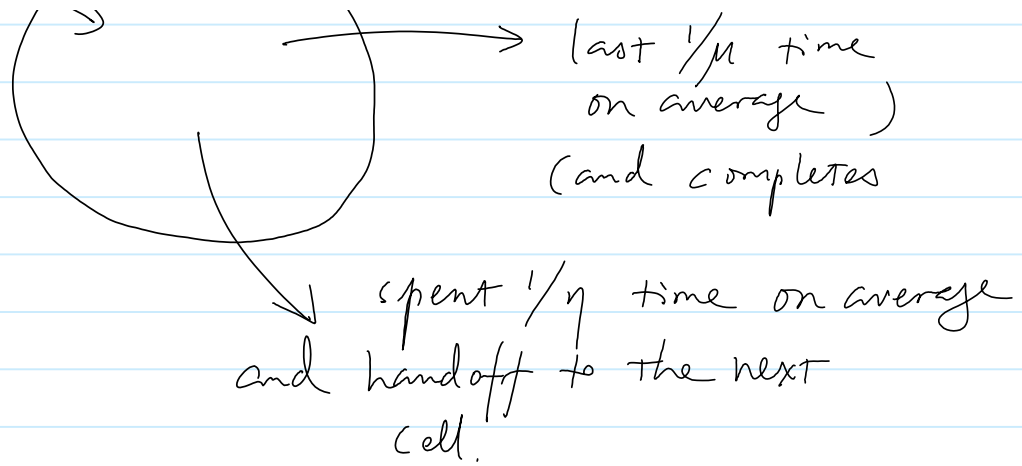 last 1/μ time
on average )
(and completes
spent 1/η time on average
and handoff to the next
cell.